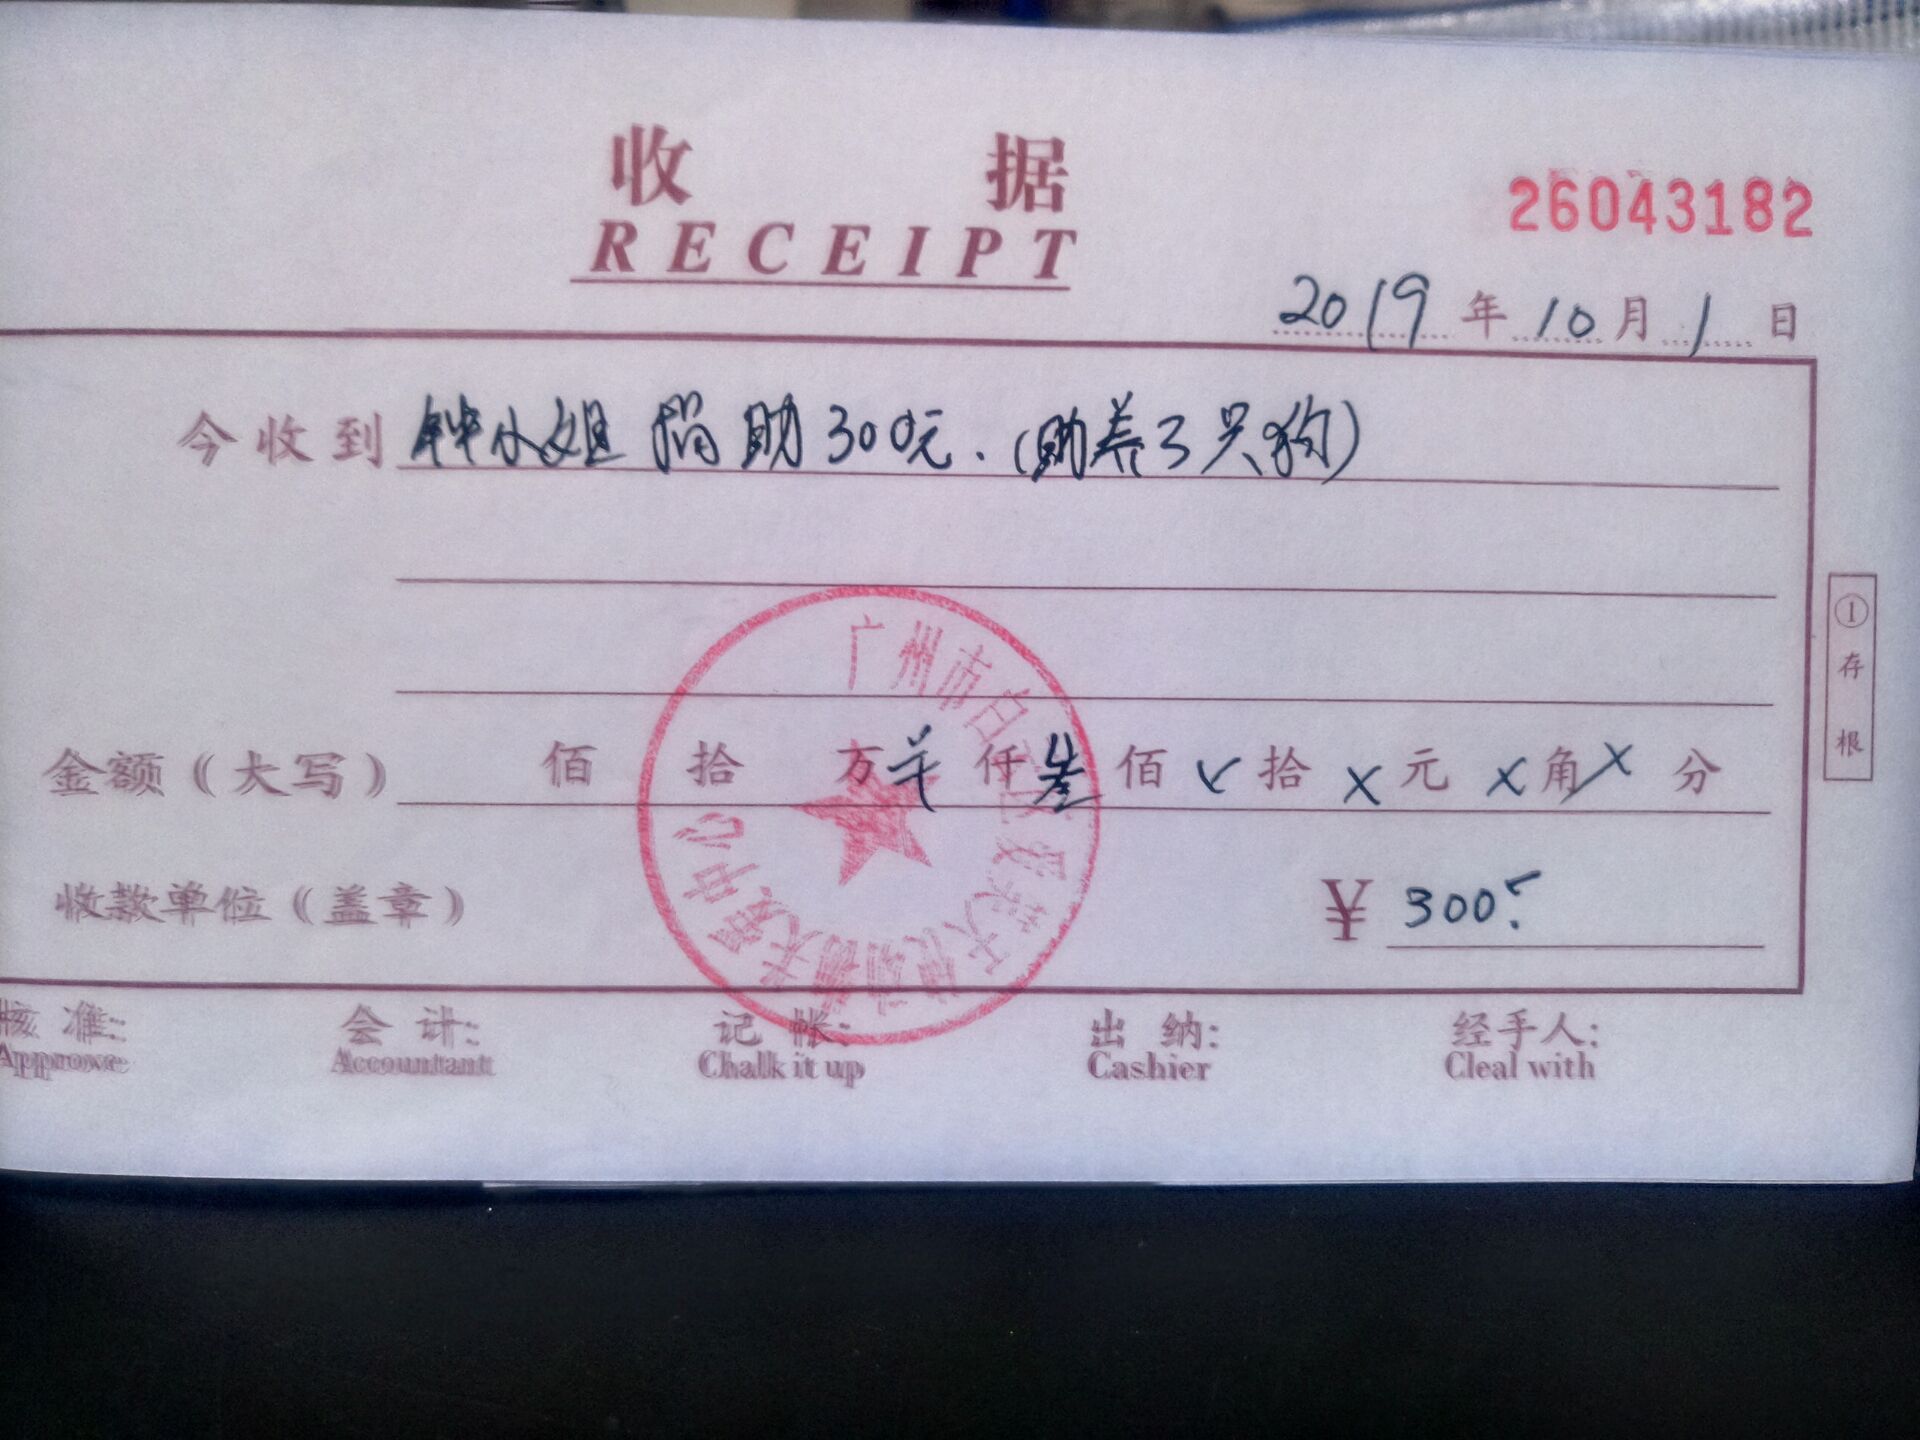 收 据
RECEIPT
26043182
2019 年 10 月 1 日
今收到 钟小姐 捐助 300元.（助养了只狗）
金额（大写） 佰 拾 万 仟 叁 佰 × 拾 × 元 × 角 × 分
收款单位（盖章） ¥ 300
① 存根
核 准: 会 计: 记 帐: 出 纳: 经手人:
Approve Accountant Chalk it up Cashier Cleal with
广州市
中心